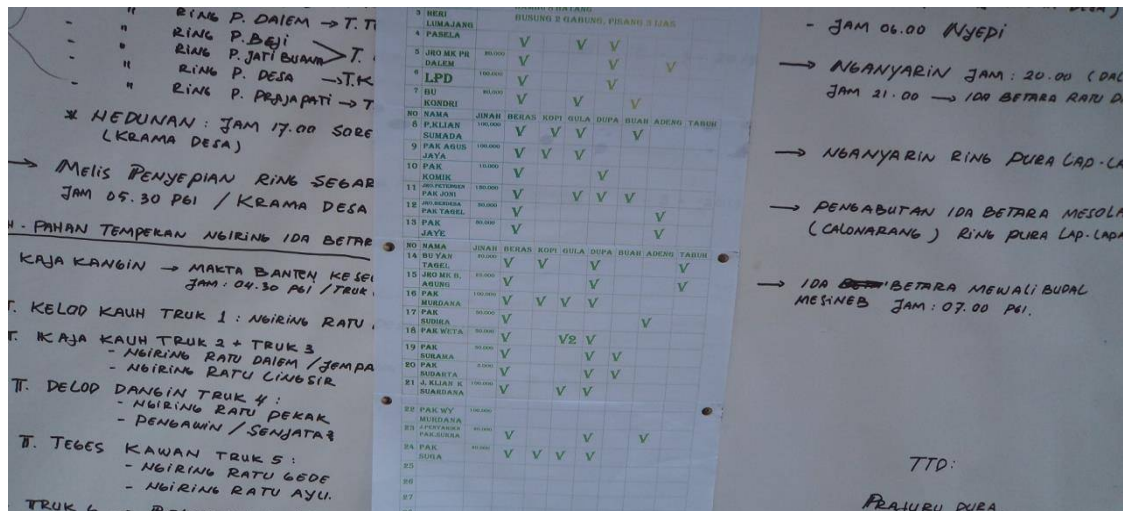 " RING P. DALEM → T. T
- " RING P. BEJI
- " RING P. JATI BUANA > T.
- " RING P. DESA → T. K
- " RING P. PRAJAPATI → T
* NEDUNAN : JAM 17.00 SORE
(KRAMA DESA)
→ MELIS PENYEPIAN RING SEGAR
JAM 05.30 PGI / KRAMA DESA
PAHAN TEMPEKAN NGIRING IDA BETAR
KAJA KANGIN → MAKTA BANTEN KE SE
JAM : 04.30 PGI / TRUK
T. KELOD KAUH TRUK 1 : NGIRING RATU
T. KAJA KAUH TRUK 2 + TRUK 3
- NGIRING RATU DALEM / JEMPA
- NGIRING RATU LINGSIR
T. DELOD DANGIN TRUK 4 :
- NGIRING RATU PEKAK
- PENGAWIN / SENJATA
T. TEGES KAWAN TRUK 5 :
- NGIRING RATU GEDE
- NGIRING RATU AYU.
TRUK 6
BUSUNG 2 GABUNG, PISANG 3 IJAS
3 HERI
LUMAJANG
4 PASELA V V V
5 JRO MK PR 50.000
DALEM V V V
6 LPD 100.000 V V
7 BU 50.000
KONDRI V V V
NO NAMA JINAH BERAS KOPI GULA DUPA BUAH ADENG TABUH
8 P.KLIAN 100,000
SUMADA V V V V
9 PAK AGUS 100,000
JAYA V V V
10 PAK 10,000
KOMIK V V
11 JRO.PETENGEN 150,000
PAK JONI V V V V
12 JRO.BENDESA 50,000
PAK TAGEL V V
13 PAK 50,000
JAYE V V
NO NAMA JINAH BERAS KOPI GULA DUPA BUAH ADENG TABUH
14 BU YAN
TAGEL V V V V
15 JRO MK R.
AGUNG V V V
16 PAK 100,000
MURDANA V V V V
17 PAK 50,000
SUDIRA V V
18 PAK WETA 50,000 V V2 V
19 PAK
SURAMA V V V
20 PAK
SUDARTA V V V
21 J. KLIAN K 100,000
SUARDANA V V V
22 PAK WY 100,000
MURDANA
23
PAK.SUKRA V V V
24 PAK
SUGA V V V V
25
26
27
- JAM 06.00 NYEPI
→ NGANYARIN JAM : 20.00 (DAL
JAM 21.00 → IDA BETARA RATU D
→ NGANYARIN RING PURA LAP-LA
→ PENGABUTAN IDA BETARA MESOLA
(CALONARANG) RING PURA LAP-LAPA
→ IDA BETARA MEWALI BUDAL
MESINEB JAM : 07.00 PGI.
TTD :
PRAJURU PURA